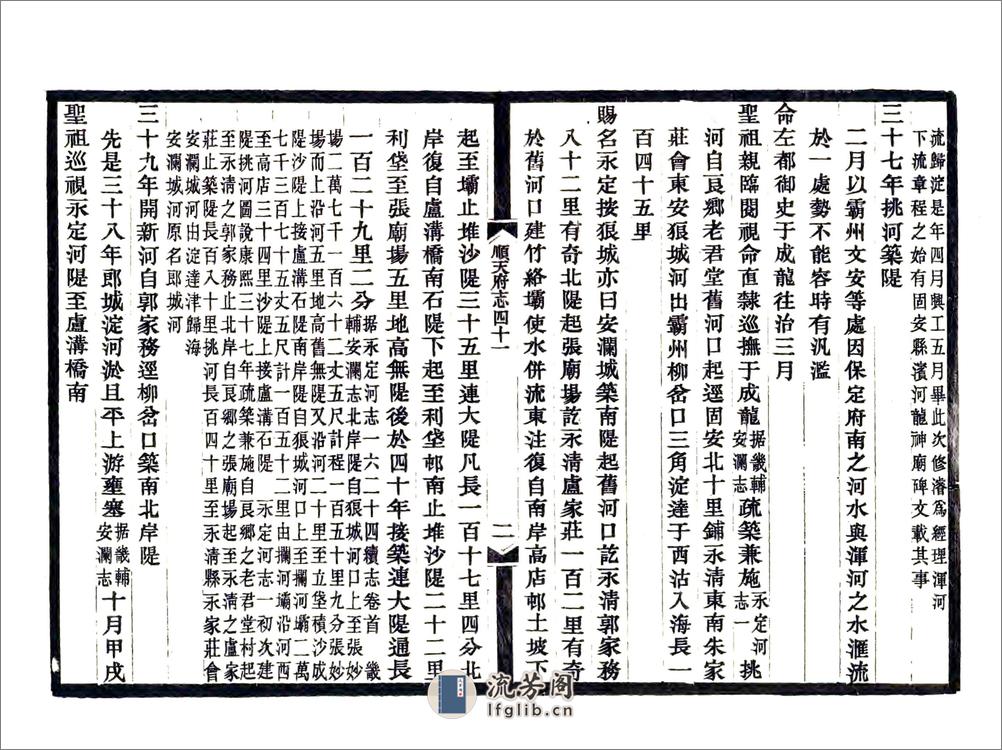 流歸淀是年四月興工五月畢此次修濬爲經理渾河
下流章程之始有固安縣濱河龍神廟碑文載其事
三十七年挑河築隄
二月以霸州文安等處因保定府南之河水與渾河之水滙流
於一處勢不能容時有汎濫
命左都御史于成龍往治三月
聖祖親臨閱視命直隸巡撫于成龍据畿輔安瀾志疏築兼施永定河志一挑
河自良鄉老君堂舊河口起逕固安北十里鋪永清東南朱家
莊會東安狼城河出霸州柳岔口三角淀達于西沽入海長一
百四十五里
賜名永定按狼城亦曰安瀾城築南隄起舊河口訖永清郭家務
八十二里有奇北隄起張廟塲訖永清盧家莊一百二里有奇
於舊河口建竹絡壩使水併流東注復自南岸高店邨土坡下
順天府志四十一
二
起至壩止堆沙隄三十五里連大隄凡長一百十七里四分北
岸復自盧溝橋南石隄下起至利垡邨南止堆沙隄二十二里
利垡至張廟塲五里地高無隄後於四十年接築連大隄通長
一百二十九里二分据永定河志一六二十四續志卷首 畿
輔安瀾志北岸隄自狼城河口上至張妙
塲二萬七千一百六十二丈五尺計程一百五十里九分張妙
塲而上沿河五里地高舊無隄又沿河二十里至立垡積沙成
隄沙隄上接盧溝石隄南岸隄自狼城河口上至攔河壩二萬
七千三百七十五丈五尺計一百五十二里由攔河壩沿河西
至高店三十四里沙隄上接盧溝石隄 永定河志一初次建
隄挑河圖說康熙三十七年疏築兼施自良鄉之老君堂村起
至永清之郭家務止北岸自良鄉之張廟塲起至永清之盧家
莊止築隄長百八十里挑河長百四十里至永清縣永家莊會
安瀾城河出淀達津歸海
安瀾城河原名郎城河
三十九年開新河自郭家務逕柳岔口築南北岸隄
先是三十八年郎城淀河淤且平上游壅塞据畿輔安瀾志十月甲戌
聖祖巡視永定河隄至盧溝橋南
流芳阁
lfglib.cn